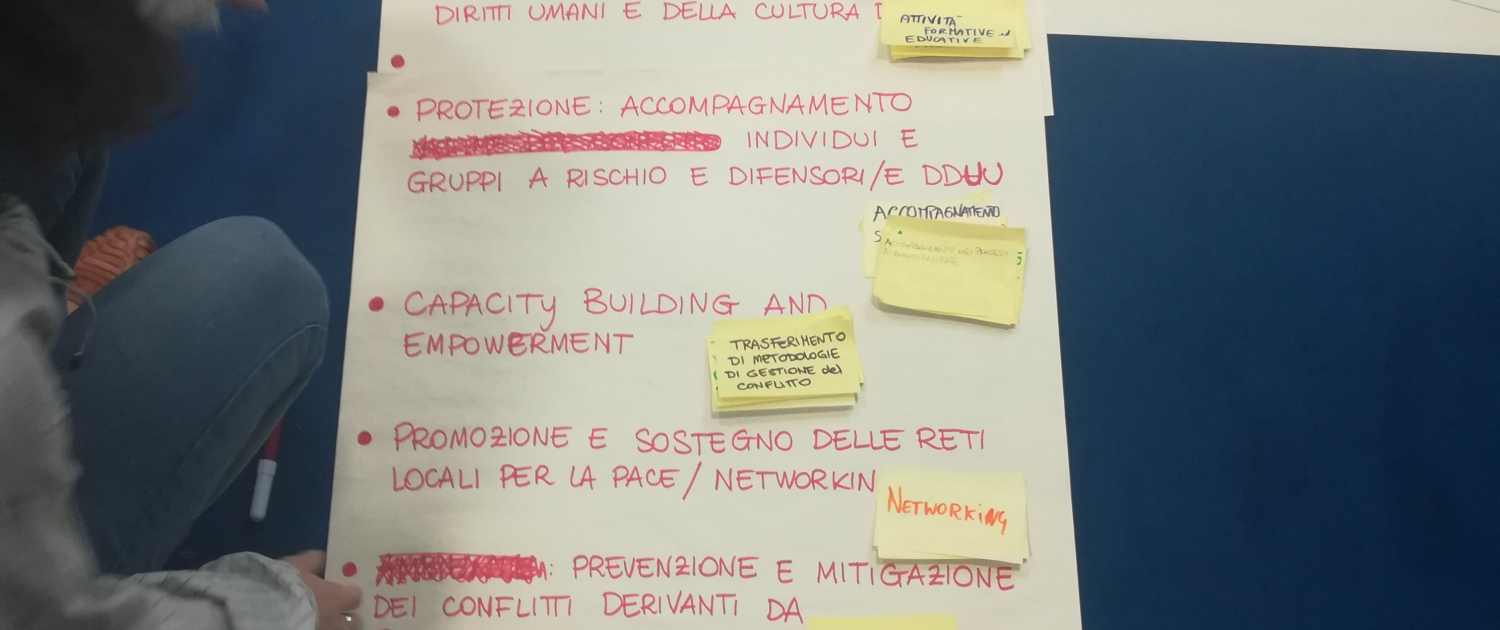 DIRITTI UMANI E DELLA CULTURA
ATTIVITÀ
FORMATIVE
EDUCATIVE
PROTEZIONE: ACCOMPAGNAMENTO
INDIVIDUI E
GRUPPI A RISCHIO E DIFENSORI/E DDUU
ACCOMPAGNAMENTO
CAPACITY BUILDING AND
EMPOWERMENT
TRASFERIMENTO
DI METODOLOGIE
DI GESTIONE del
CONFLITTO
PROMOZIONE E SOSTEGNO DELLE RETI
LOCALI PER LA PACE / NETWORKIN
NETWORKING
: PREVENZIONE E MITIGAZIONE
DEI CONFLITTI DERIVANTI DA